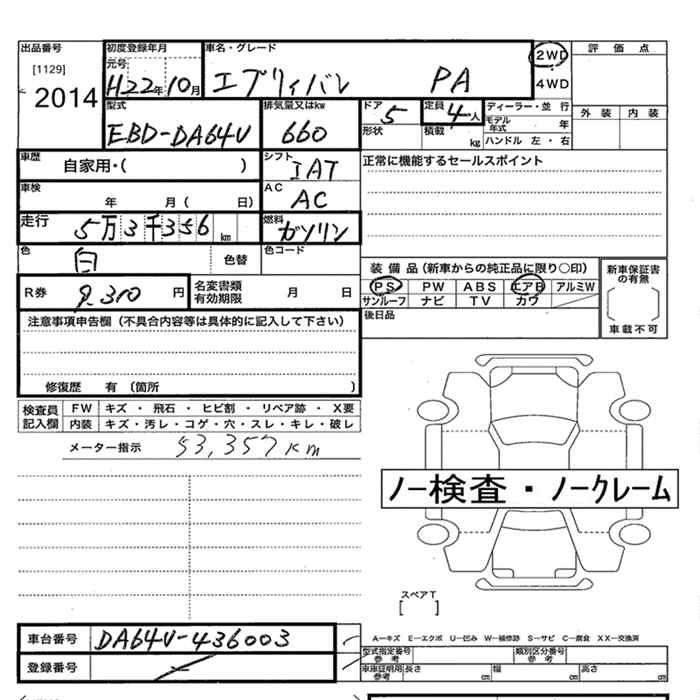 出品番号 初度登録年月 車名・グレード 2WD 評価点
[1129] 元号 H22年10月 エブリィバン PA 4WD
2014 外装 内装
型式 排気量又はkw ドア 5 定員 4人 ディーラー・並行
EBD-DA64V 660 形状 積載 kg モデル年式 年
ハンドル 左・右
車歴 自家用・( ) シフト IAT 正常に機能するセールスポイント
車検 年 月( 日) AC AC
走行 5万3千356km 燃料 ガソリン
色 白 色替 色コード
装備品(新車からの純正品に限り○印) 新車保証書の有無
R券 9,310円 名変書類有効期限 月 日 PS PW ABS エアB アルミW
サンルーフ ナビ TV カワ
車載不可
注意事項申告欄(不具合内容等は具体的に記入して下さい) 後日品
修復歴 有(箇所 )
検査員記入欄 FW キズ・飛石・ヒビ割・リペア跡・X要
内装 キズ・汚レ・コゲ・穴・スレ・キレ・破レ
メーター指示 53,357km
ノー検査・ノークレーム
スペアT
[ ]
車台番号 DA64V-436003 A—キズ E—エクボ U—凹み W—補修跡 S—サビ C—腐食 XX—交換済
型式指定番号 参考 類別区分番号 参考
登録番号 — 車庫証明用 参考 長さ cm 幅 cm 高さ cm